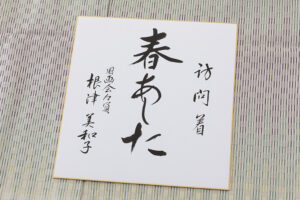 訪問着
春あした
国画会会員
根津美和子